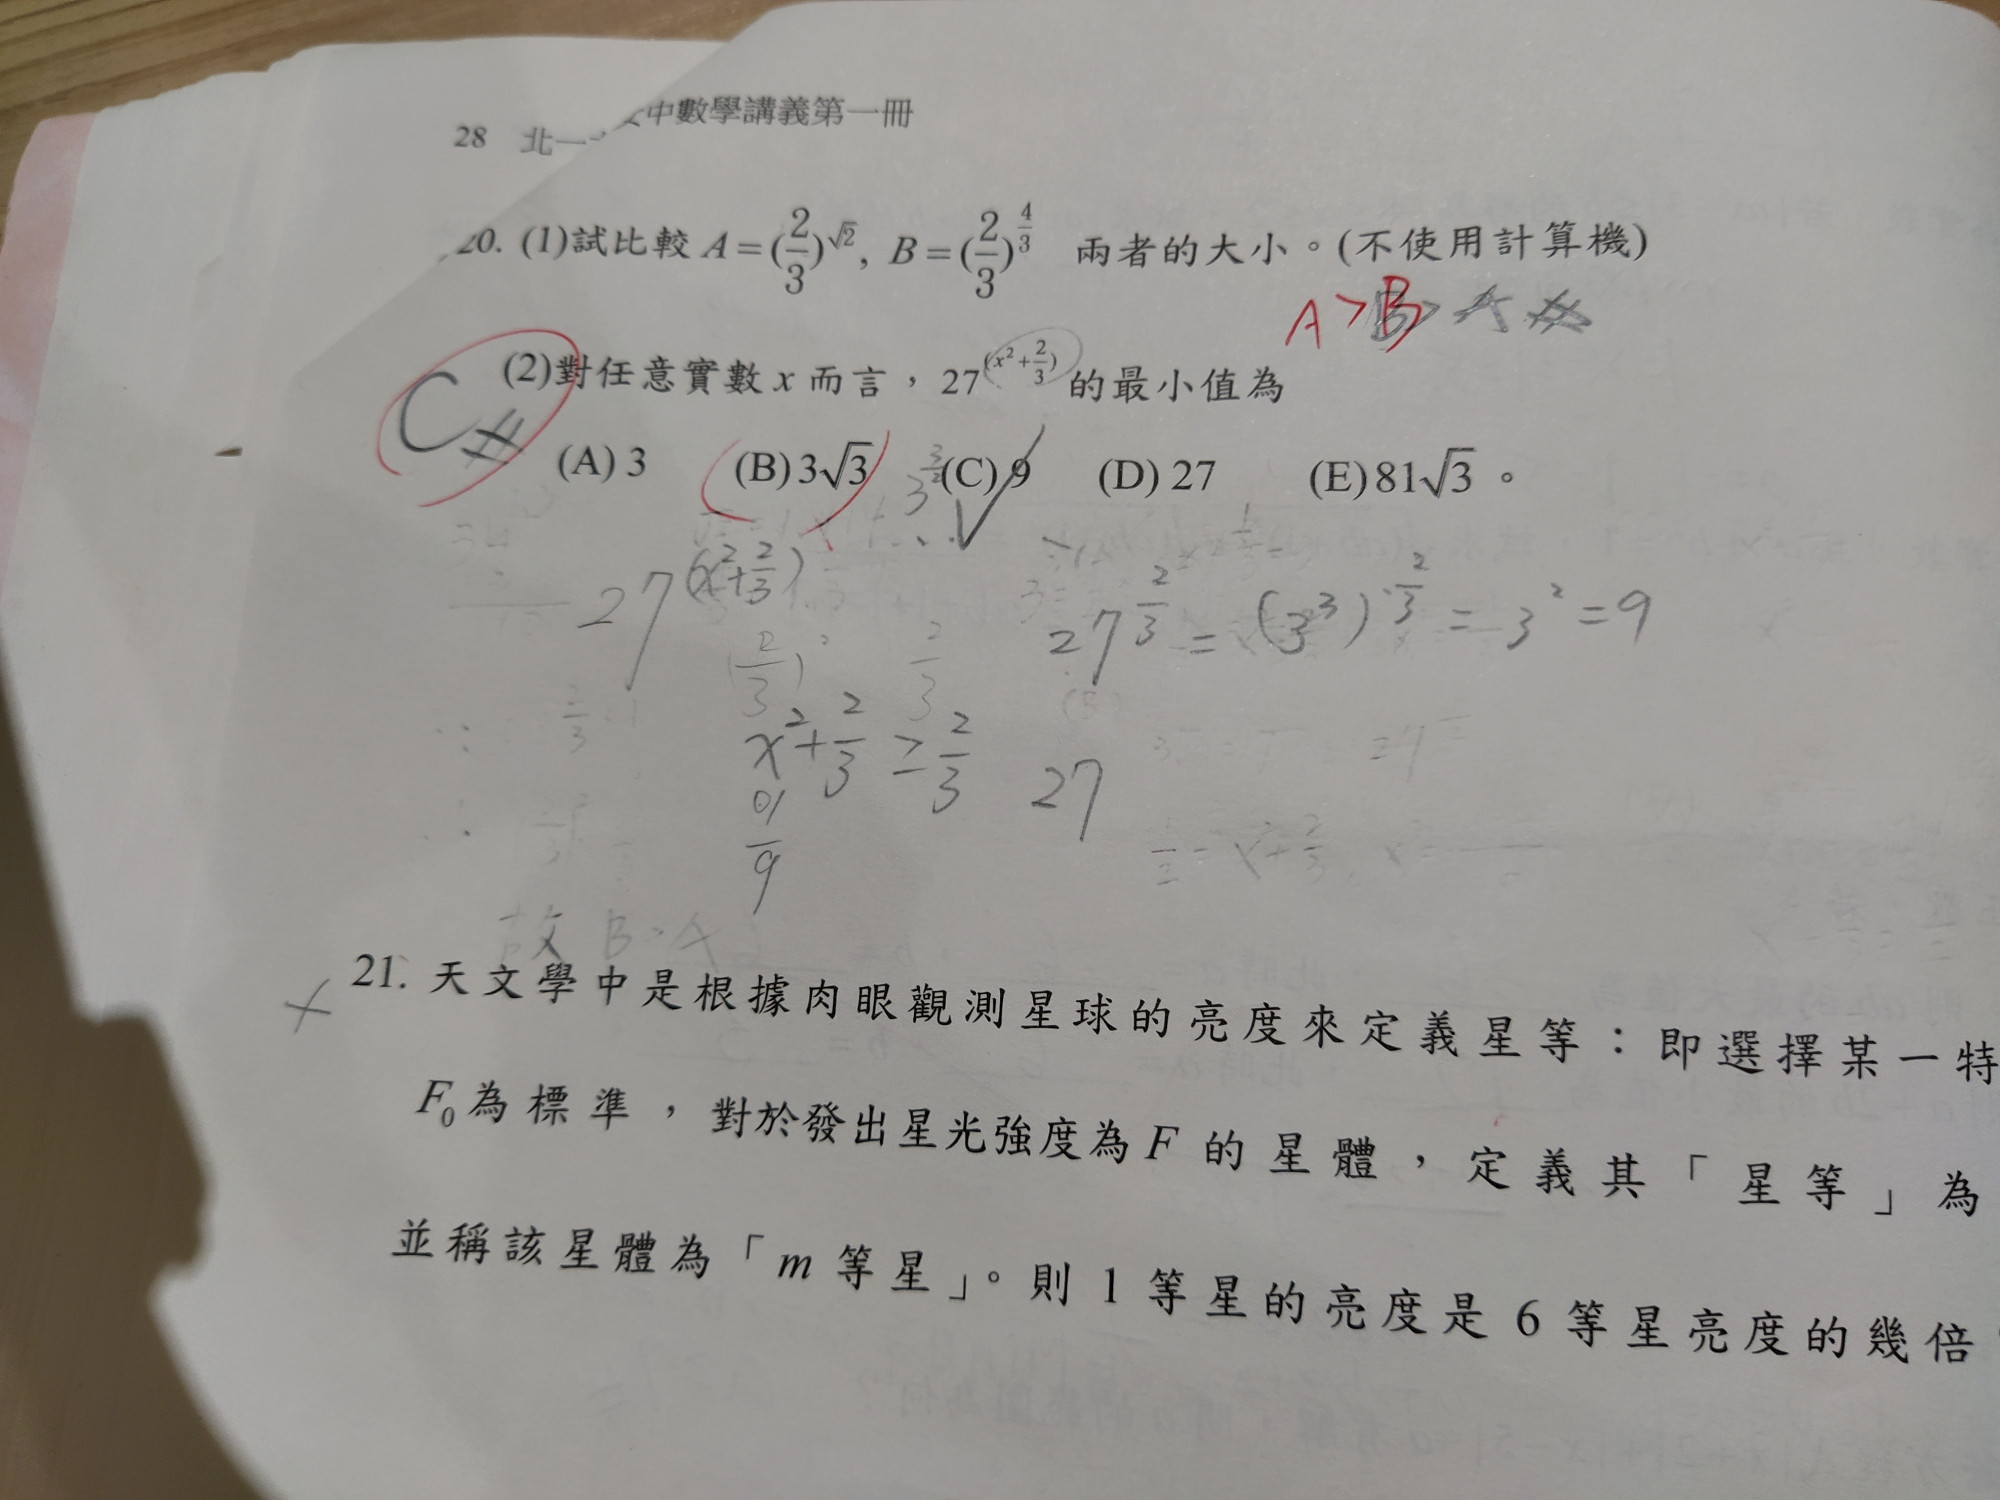 28 北一 中數學講義第一冊
20. (1)試比較 A=(2/3)^√2, B=(2/3)^(4/3) 兩者的大小。(不使用計算機)
A>B
(2)對任意實數 x 而言，27^(x²+2/3) 的最小值為
C#
(A) 3 (B) 3√3 (C) 9 (D) 27 (E) 81√3 。
3^(3/2)
27^(x²+2/3)
27^(2/3) = (3³)^(2/3) = 3² = 9
(2/3)² 2/3
x²+2/3 ≥ 2/3 27
9
故 B>A
21. 天文學中是根據肉眼觀測星球的亮度來定義星等：即選擇某一特
F₀為標準，對於發出星光強度為F 的星體，定義其「星等」為
並稱該星體為「m等星」。則 1 等星的亮度是 6 等星亮度的幾倍